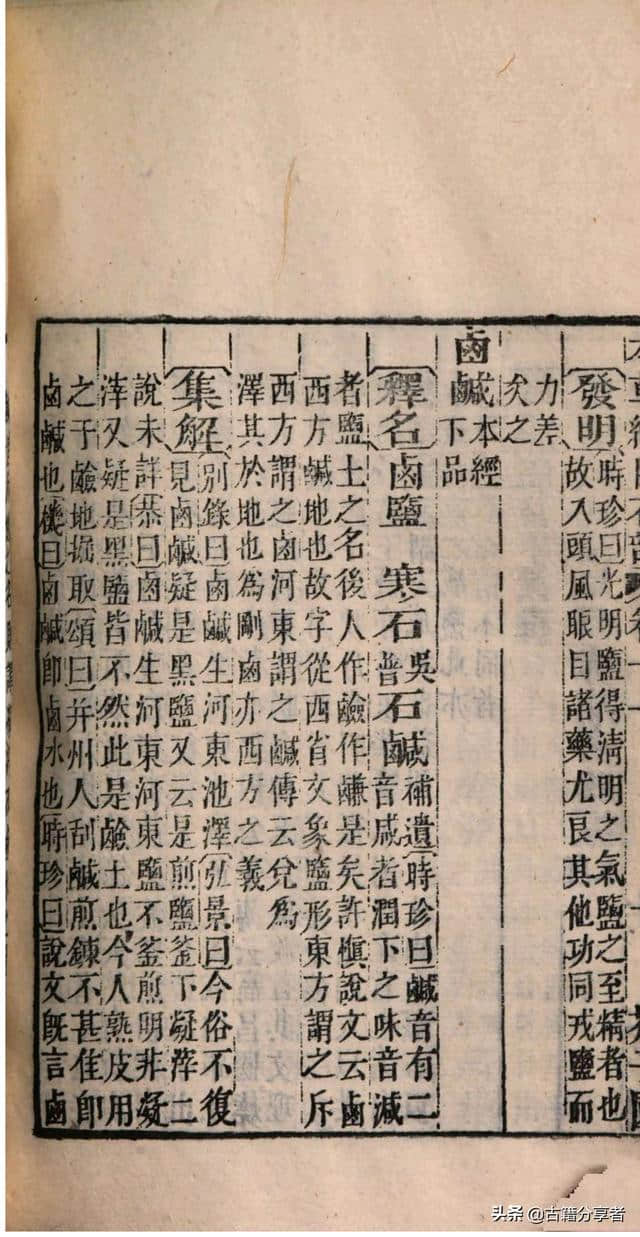 發明時珍曰光明鹽得清明之氣鹽之至精者也
故入頭風眼目諸藥尤良其他功同戎鹽而
力差
次之
鹵鹹本經
下品
釋名鹵鹽 寒石吳普石鹹補遺時珍曰鹹音有二
音咸者潤下之味音減
者鹽土之名後人作鹼作鹻是矣許慎說文云鹵
西方鹹地也故字從西省文象鹽形東方謂之斥
西方謂之鹵河東謂之鹹傳云兌為
澤其於地也為剛鹵亦西方之義
集解別錄曰鹵鹹生河東池澤弘景曰今俗不復
見鹵鹹疑是黑鹽又云是煎鹽釜下凝滓二
說未詳恭曰鹵鹹生河東河東鹽不釜煎明非凝
滓又疑是黑鹽皆不然此是鹼土也今人熟皮用
之于鹼地掘取頌曰并州人刮鹹煎鍊不甚佳即
鹵鹹也機曰鹵鹹即鹵水也時珍曰說文既言鹵
头条 @古籍分享者